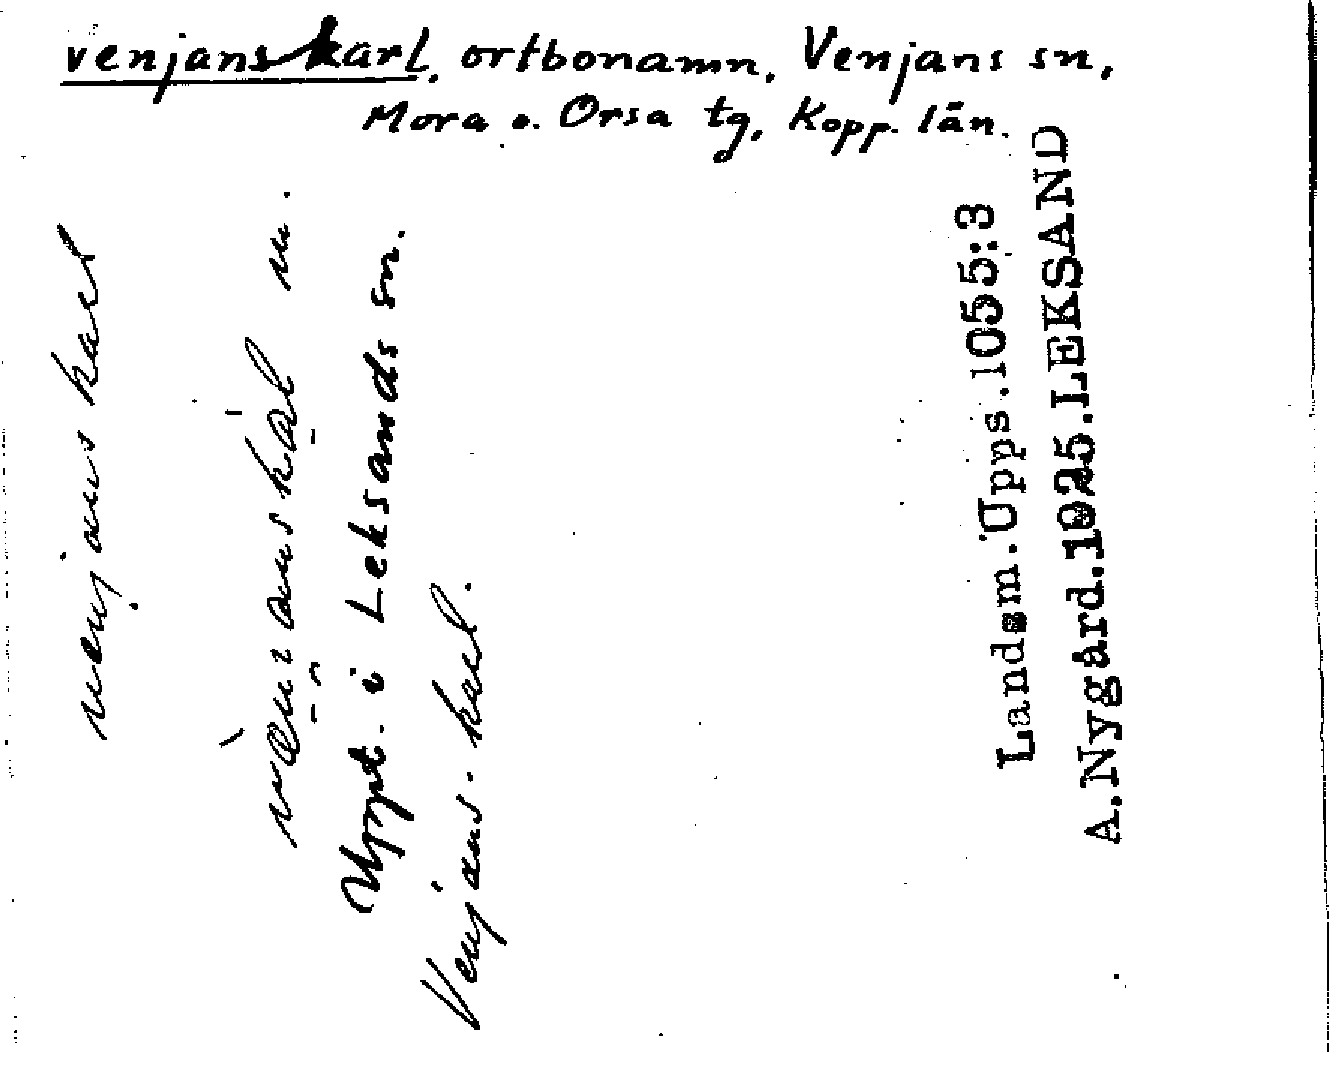 venjanskarl, ortbonamn, Venjans sn,
Mora o. Orsa tg, Kopp. län.
venjanskarl
m.
Uppt. i Leksands sn.
Venjans-karl.
Landsm.Upps.1055:3
A.Nygård.1925.LEKSAND